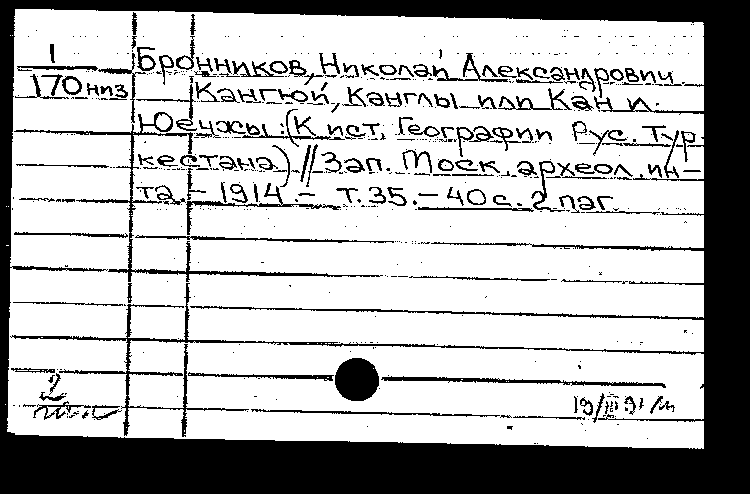 1
170 низ
Бронников, Николай Александрович
Кангюй, Канглы или Кан и
Юечжы: (К ист. Географии Рус. Тур-
кестана) // Зап. Моск. археол. ин-
та. – 1914. – Т. 35. – 40 с. 2 паг.
2
19/III 91